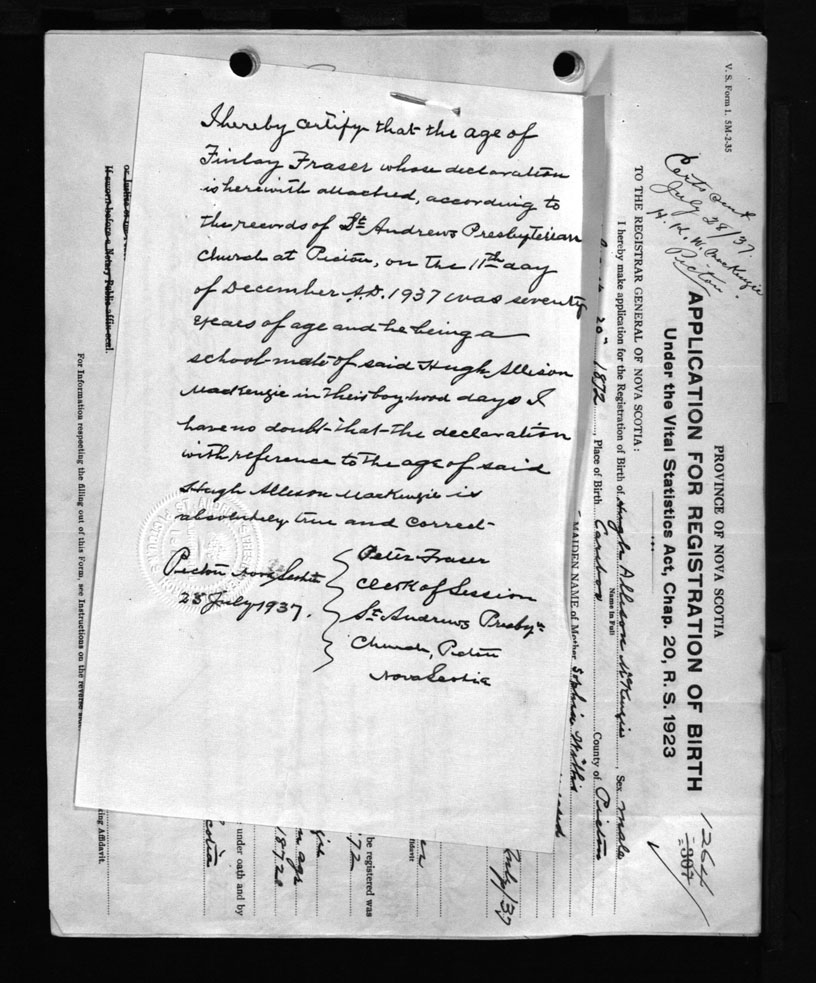 I hereby certify that the age of
Finlay Fraser whose declaration
is herewith attached, according to
the records of St. Andrews Presbyterian
Church at Pictou, on the 11th day
of December A.D. 1937 was seventy
years of age and he being a
school-mate of said Hugh Allison
MacKenzie in their boyhood days I
have no doubt that the declaration
with reference to the age of said
Hugh Allison MacKenzie is
absolutely true and correct-
Pictou Nova Scotia
23 July 1937.
Peter Fraser
Clerk of Session
St. Andrews Presbyn
Church, Pictou
Nova Scotia
V. S. Form 1. 5M-2-35
Certs Sent
July 28/37
H. K. McKenzie
Pictou.
PROVINCE OF NOVA SCOTIA
APPLICATION FOR REGISTRATION OF BIRTH
Under the Vital Statistics Act, Chap. 20, R. S. 1923
1264
307
TO THE REGISTRAR GENERAL OF NOVA SCOTIA:
I hereby make application for the Registration of Birth of Hugh Allison McKenzie, Sex male
Name in Full
20th 1872, Place of Birth Caribou County of Pictou
MAIDEN NAME of Mother Sophia Willis
July/37
be registered was
'72
n age
1872
under oath and by
cotia
or Justice of the
If sworn before a Notary Public affix seal.
ring Affidavit.
For Information respecting the filling out of this Form, see Instructions on the reverse